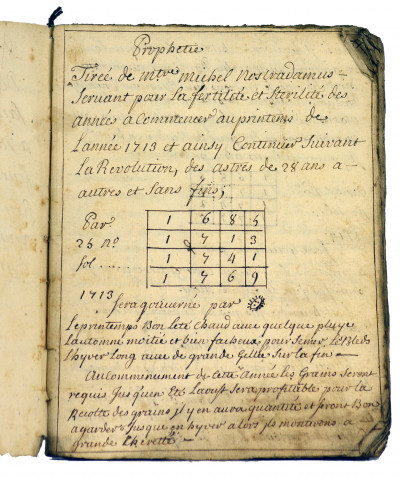 Prophetie
Tirée de mtre michel Nostradamus
Servant pour La fertilité et Sterilité des
années a Commencer au printems de
Lannée 1713 et ainsy Continuer Suivant
La Revolution, des astres de 28 ans a
autres et Sans fins;
Par. 1 6 8 5
25 No. 1 7 1 3
Sol .... 1 7 4 1
1 7 6 9
1713
Sera gouverné par
Le printemps Bon Leté chaud avec quelque pluye
Lautomne moitié et bien facheux pour Semer Le Bleds
Lhyver Long avec de grande Gellée Sur La fin
Au Commencement de Cette Année Les Grains Seront
requis Jusqu'en Eté Laoust Sera profitable pour La
Recolte des grains jl y en aura quantité et Seront Bon
a garder Jusque en hyver alors jls monteront a
grande Cherette